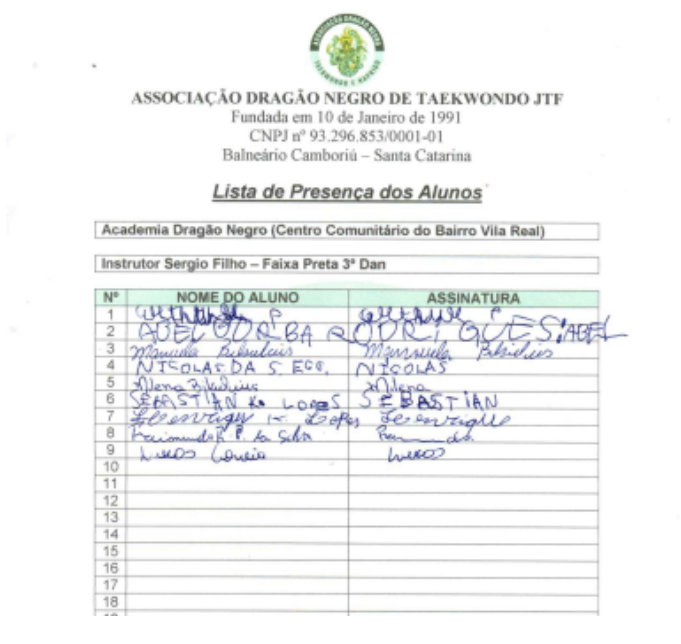 ASSOCIAÇÃO DRAGÃO NEGRO
TAEKWONDO E HAPKIDO
ASSOCIAÇÃO DRAGÃO NEGRO DE TAEKWONDO JTF
Fundada em 10 de Janeiro de 1991
CNPJ nº 93.296.853/0001-01
Balneário Camboriú – Santa Catarina
Lista de Presença dos Alunos
Academia Dragão Negro (Centro Comunitário do Bairro Vila Real)
Instrutor Sergio Filho – Faixa Preta 3º Dan
Nº NOME DO ALUNO ASSINATURA
1
2 RODRI GUES ABEL
3 Manuela Manuela
4 NICOLAS DA S. NICOLAS
5 Milena Milena
6 SEBASTIAN K. LOPES SEBASTIAN
7 K. Lopes
8 Raimundo P. da Silva
9 Lucas Correia Lucas
10
11
12
13
14
15
16
17
18